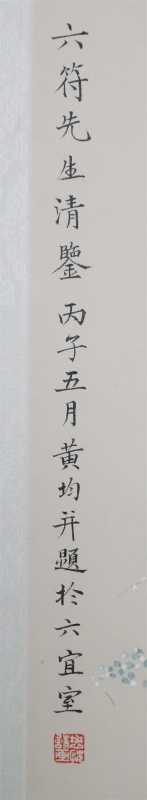 六符先生清鑒丙子五月黄均并題於六宜室